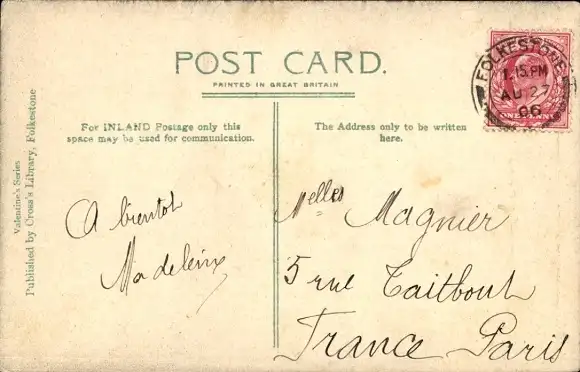 POST CARD.
PRINTED IN GREAT BRITAIN
FOLKESTONE
1.15.PM
AU 27
06
ONE PENNY
Valentine's Series
Published by Cross's Library, Folkestone
For INLAND Postage only this
space may be used for communication.
The Address only to be written
here.
A bientot
Madeleine
Melles Magnier
5 rue Taitbout
France Paris